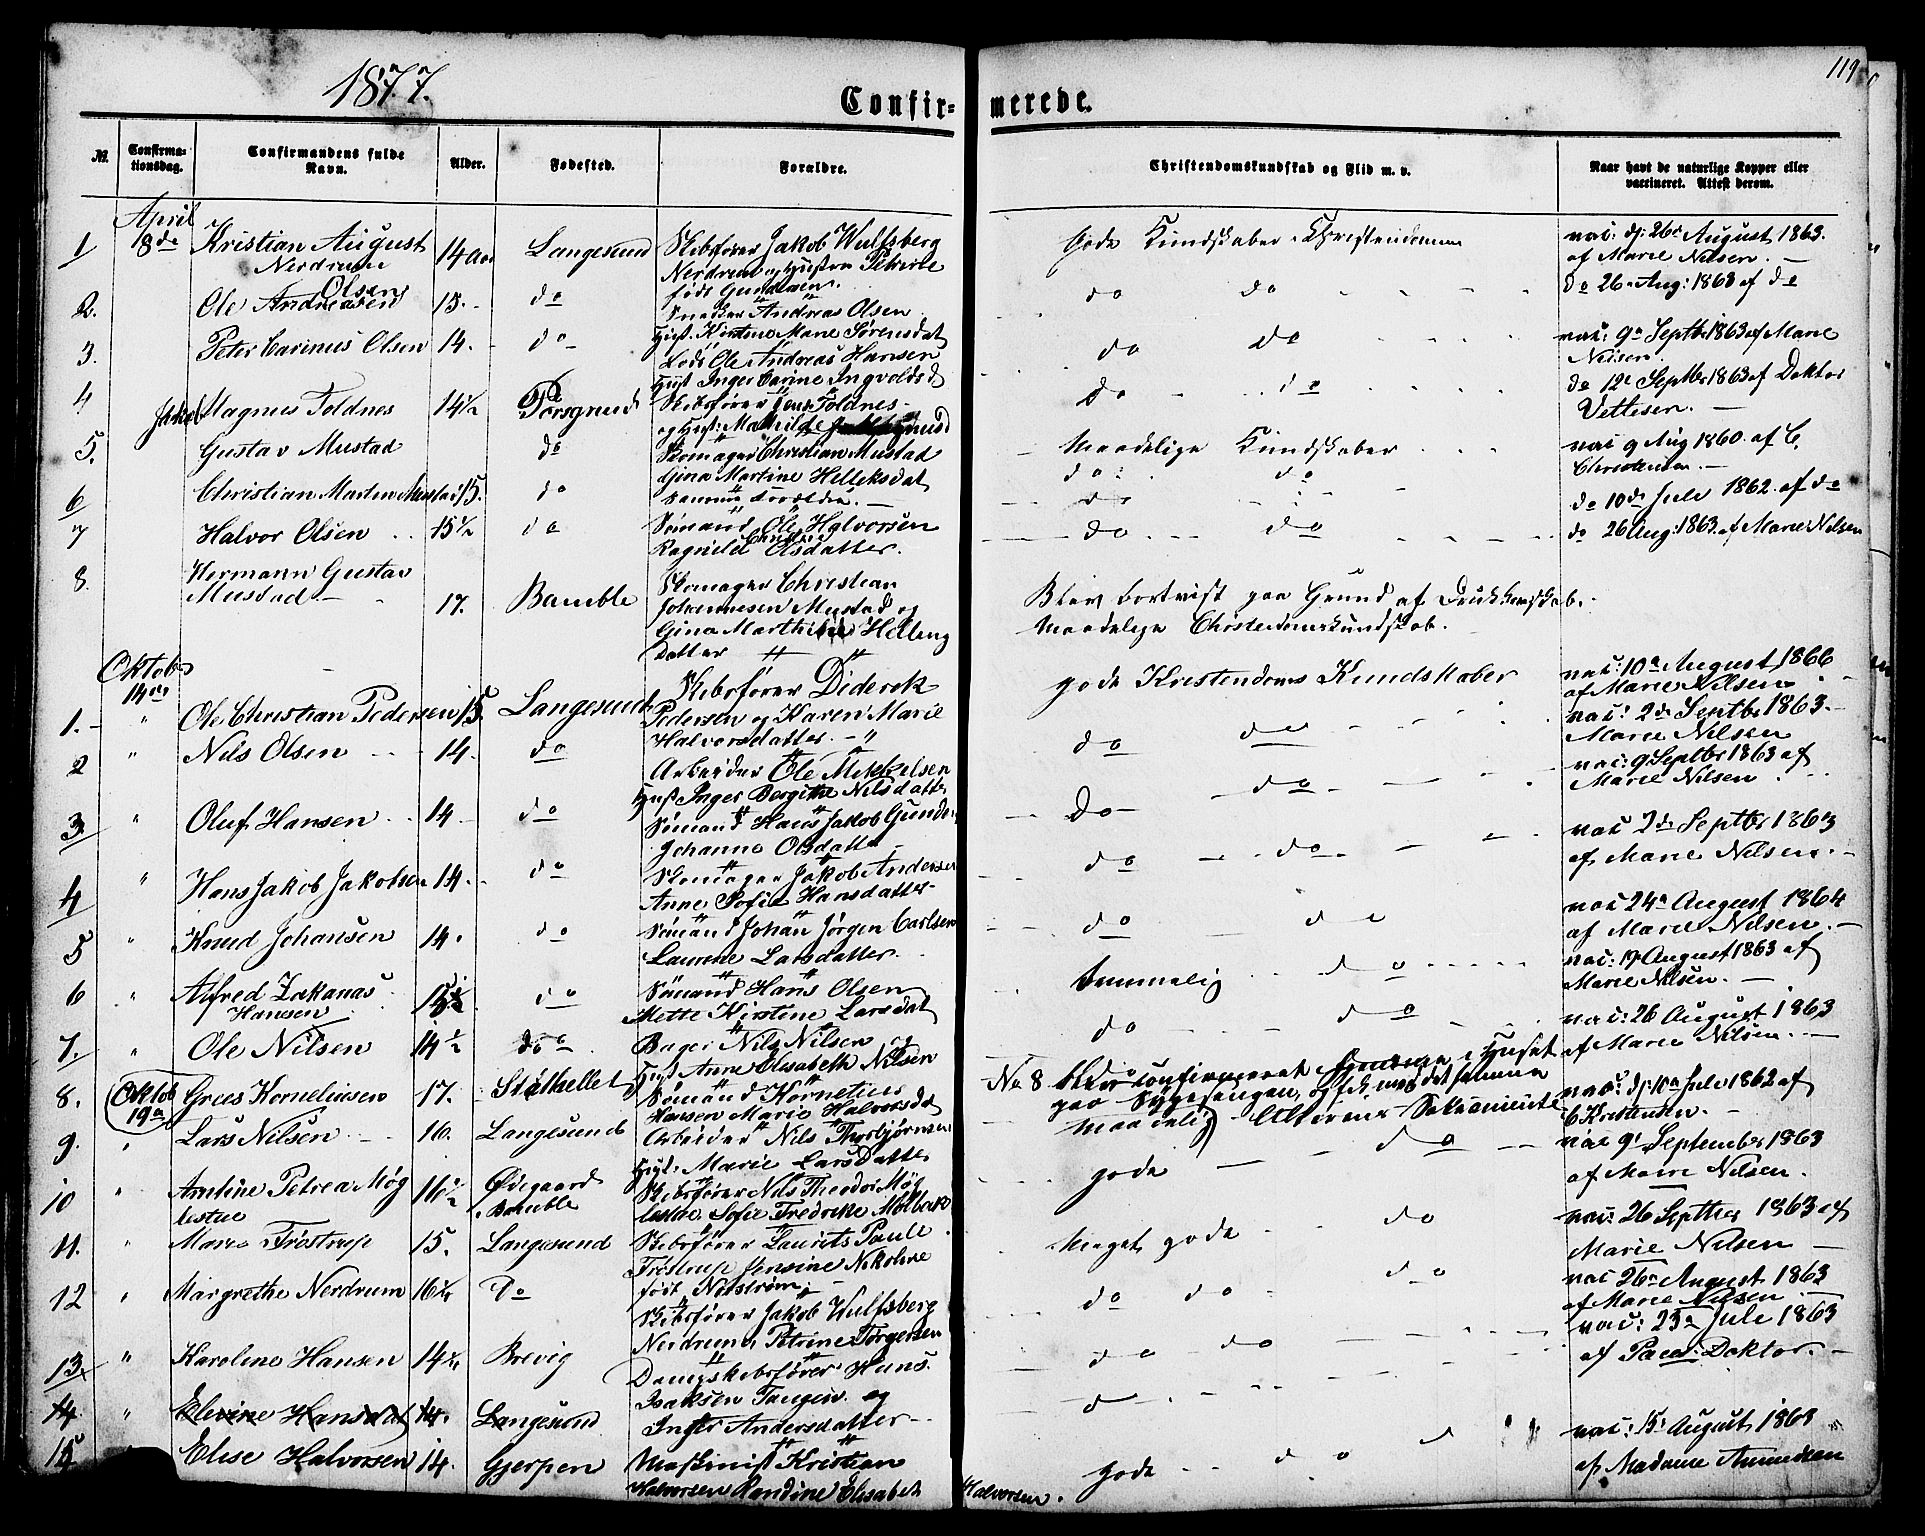 1877.
119
Confir-
merede.
№.
Confirma-
tionsdag.
Confirmandens fulde
Navn.
Alder.
Fødested.
Forældre.
Christendomskundskab og Flid m. v.
Naar havt de naturlige Kopper eller
vaccineret. Attest derom.
April
1 18de Kristian August 14 Langesund Skibsfører Jakob Wulfsberg gode Kundskaber i Christendommen vac: d: 26 August 1863.
Nerdrum Nerdrum og Hustru Petrine af Marie Nilsen.
født Gundersen.
2. Ole Andreas Olsen 15. do Andreas Olsen do do do 26 Aug: 1863 af do
Hust. Kirstine Marie Sørensdat
3. Peter Carinus Olsen 14. do Lods Ole Andreas Hansen do do vac: 9 Septbr 1863 af Marie
Nilsen.
Hust Inger Carine Ingvoldsd
4 Jakob Magnus Foldnes 14½ Porsgrund Skibsfører Foldnes do do do 12 Septbr 1863 af Doktor
og Hust: Mathilde Vettesen.
5. Gustav Mustad do Skomager Christian Mustad Maadelige Kundskaber vac 9 Aug 1860. af C.
Gina Martine Helleksdat do do Christensen.
6 Christian Martin Mustad 15. do Samme Forældre. do do 10de Juli 1862. af do
7 Halvor Olsen 15½ do Sømand Ole Halvorsen do do do 26 Aug: 1863 af Marie Nilsen
Ragnild Olsdatter.
8. Hermann Gustav
Mustad 17. Bamble Skomager Christian Blev bortvist paa Grund af Drukkenskab.
Johannesen Mustad og Maadelige Christendomskundskab.
Gina Marthine Helleng
Datter
Oktob
14de
1. " Ole Christian Pedersen 15. Langesund Skibsfører Diderik gode Kristendoms Kundskaber vac: 10 August 1866
Pedersen og Karen Marie af Marie Nilsen
Halvorsdatter.
2 " Nils Olsen 14. do Arbeider Ole Mikkelsen do do vac: 2de Septbr 1863.
Hust Inger Bergithe Nilsdatter Marie Nilsen
3. " Oluf Hansen 14 do Sømand Hans Jakob Gunders Do do vac: 9 Septbr 1863 af
Johanne Olsdatter Marie Nilsen
4 " Hans Jakob Jakobsen 14. do Skomager Jakob Andersen do do vac 2de Septbr 1863
Anne Sofie Hansdatter af Marie Nilsen.
5 " Knud Johansen 14. do Sømand Johan Jørgen Carlsen do do vac 24 August 1864
Laurene Larsdatter. af Marie Nilsen.
6 " Alfred Zakarias do Sømand Hans Olsen Temmelig do vac: 19 August 1863 af
Hansen Mette Kirstine Larsdat Marie Nilsen.
7. " Ole Nilsen 14½ do Bager Nils Nilsen og do do vac: 26 August 1863
Hust Anne Elisabeth Nilsen af Marie Nilsen.
8. Oktob 19 Grees Kornelinsen 17. Stathellet Sømand Kornelius No 8 blev confirmeret hjemme i Huset vac: d: 10 Juli 1862 af
Hansen Marie Halvorsdat paa Sygesengen, og fik med det samme C. Kristensen.
Maadelig Alterens Sakramente
9. " Lars Nilsen 16. Langesund Arbeider Nils Thorbjørnsen do vac 9 September 1863
Hust: Marie Larsdatter gode af Marie Nilsen.
10 " Amtine Petrea Møg 16½ Ødegaard Skibsfører Nils Theodor Møg
lestue Bamble lestue, Sofie Fredrike Mølbak vac: 26 Septbr 1863 af
11. " Marie Trostrup 15. Langesund Skibsfører Laurits Paule Meget gode do Marie Nilsen
Trostrup Jensine Nikoline
født Nilstrøm.
12 " Margrethe Nerdrum 16½ Do Skibsfører Jakob Wulfsberg do do do vac 26 August 1863
Nerdrum, Petrine Torgersen af Marie Nilsen
13 " Karoline Hansen 14½ Brevig Dampskibsfører Hans do do vac: 23 Juli 1863
Isaksen Tangen og af Doktor.
14. " Elevine Hansdat 14. Langesund Inger Andersdatter do
15 Elise Halvorsen 14. Gjerpen Maskinist Kristian gode do vac: 15 August 1863
Halvorsen Randine Elisabet Halvorsen. af Madame Amundsen